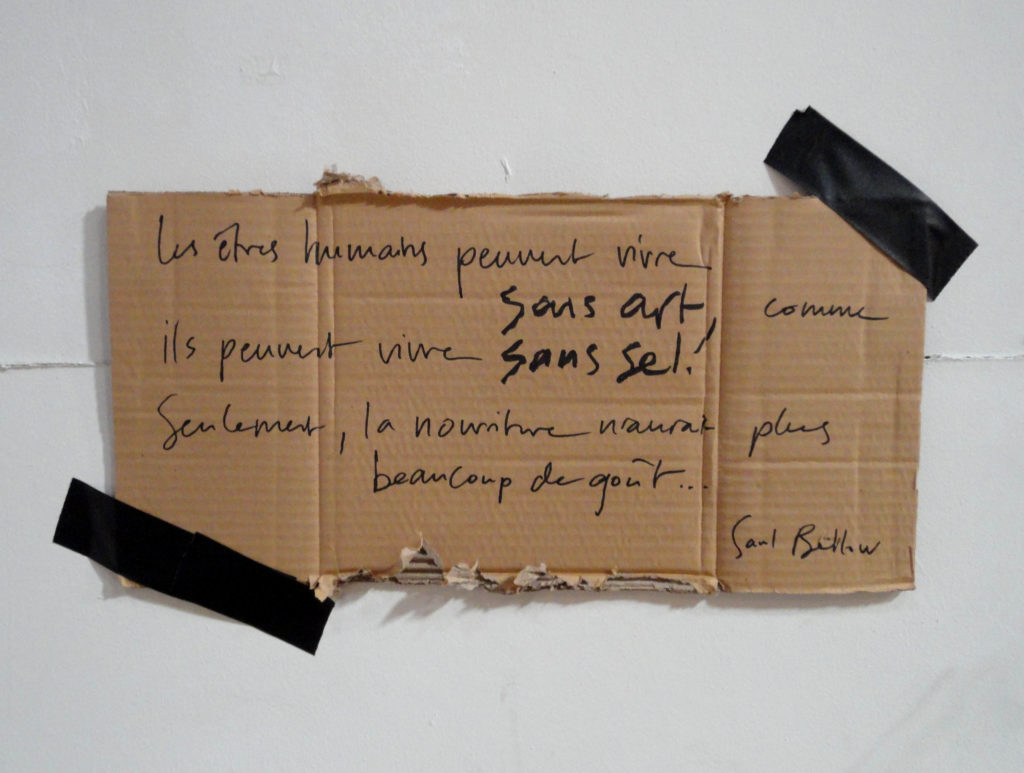 Les êtres humains peuvent vivre
sans art, comme
ils peuvent vivre sans sel!
Seulement, la nourriture n'aurait plus
beaucoup de goût...
Saul Bellow